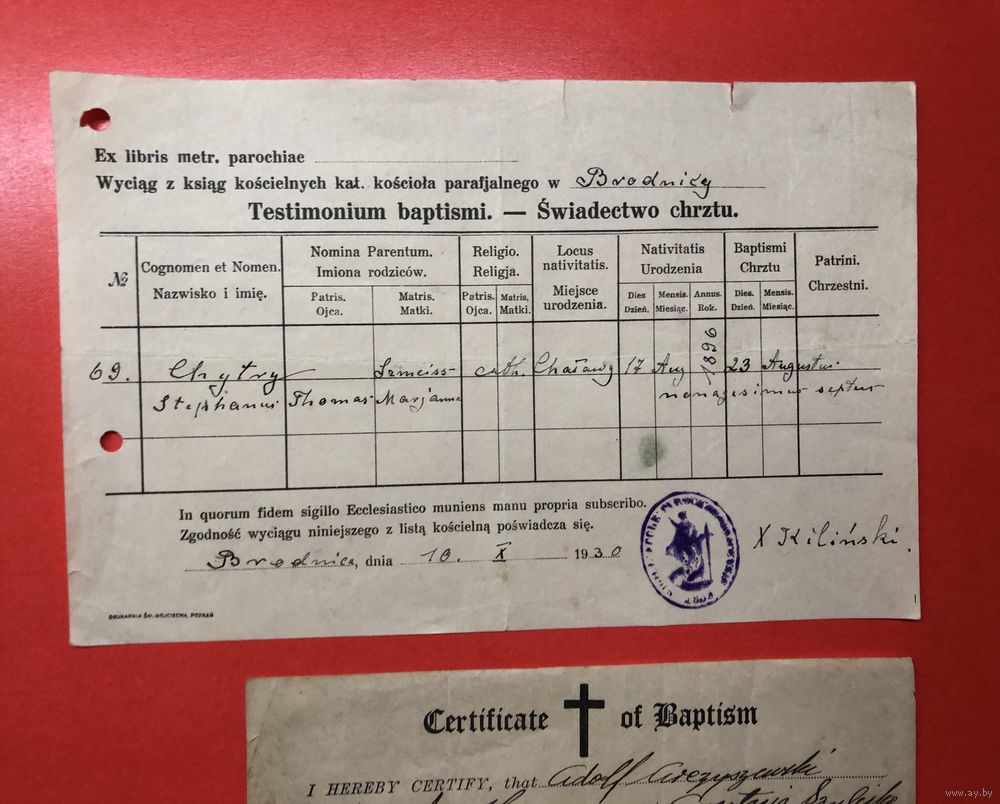 Ex libris metr. parochiae
Wyciąg z ksiąg kościelnych kat. kościoła parafjalnego w Brodnicy
Testimonium baptismi. — Świadectwo chrztu.
№ Cognomen et Nomen. Nomina Parentum. Religio. Locus nativitatis. Nativitatis Baptismi Patrini.
Nazwisko i imię. Imiona rodziców. Religja. Miejsce urodzenia. Urodzenia Chrztu Chrzestni.
Patris. Matris. Patris. Matris, Dies Mensis. Annus. Dies. Mensis.
Ojca. Matki. Ojca. Matki. Dzień. Miesiąc. Rok. Dzień. Miesiąc.
69. Chytry cath. 17 Aug 1896 23 Augusti
Stephanus Thomas Marjanna nonagesimus
In quorum fidem sigillo Ecclesiastico muniens manu propria subscribo.
Zgodność wyciągu niniejszego z listą kościelną poświadcza się.
Brodnica, dnia 10. X 1930
X Kiliński.
DRUKARNIA ŚW. WOJCIECHA, POZNAŃ
Certificate of Baptism
I HEREBY CERTIFY, that Adolf
www.ay.by